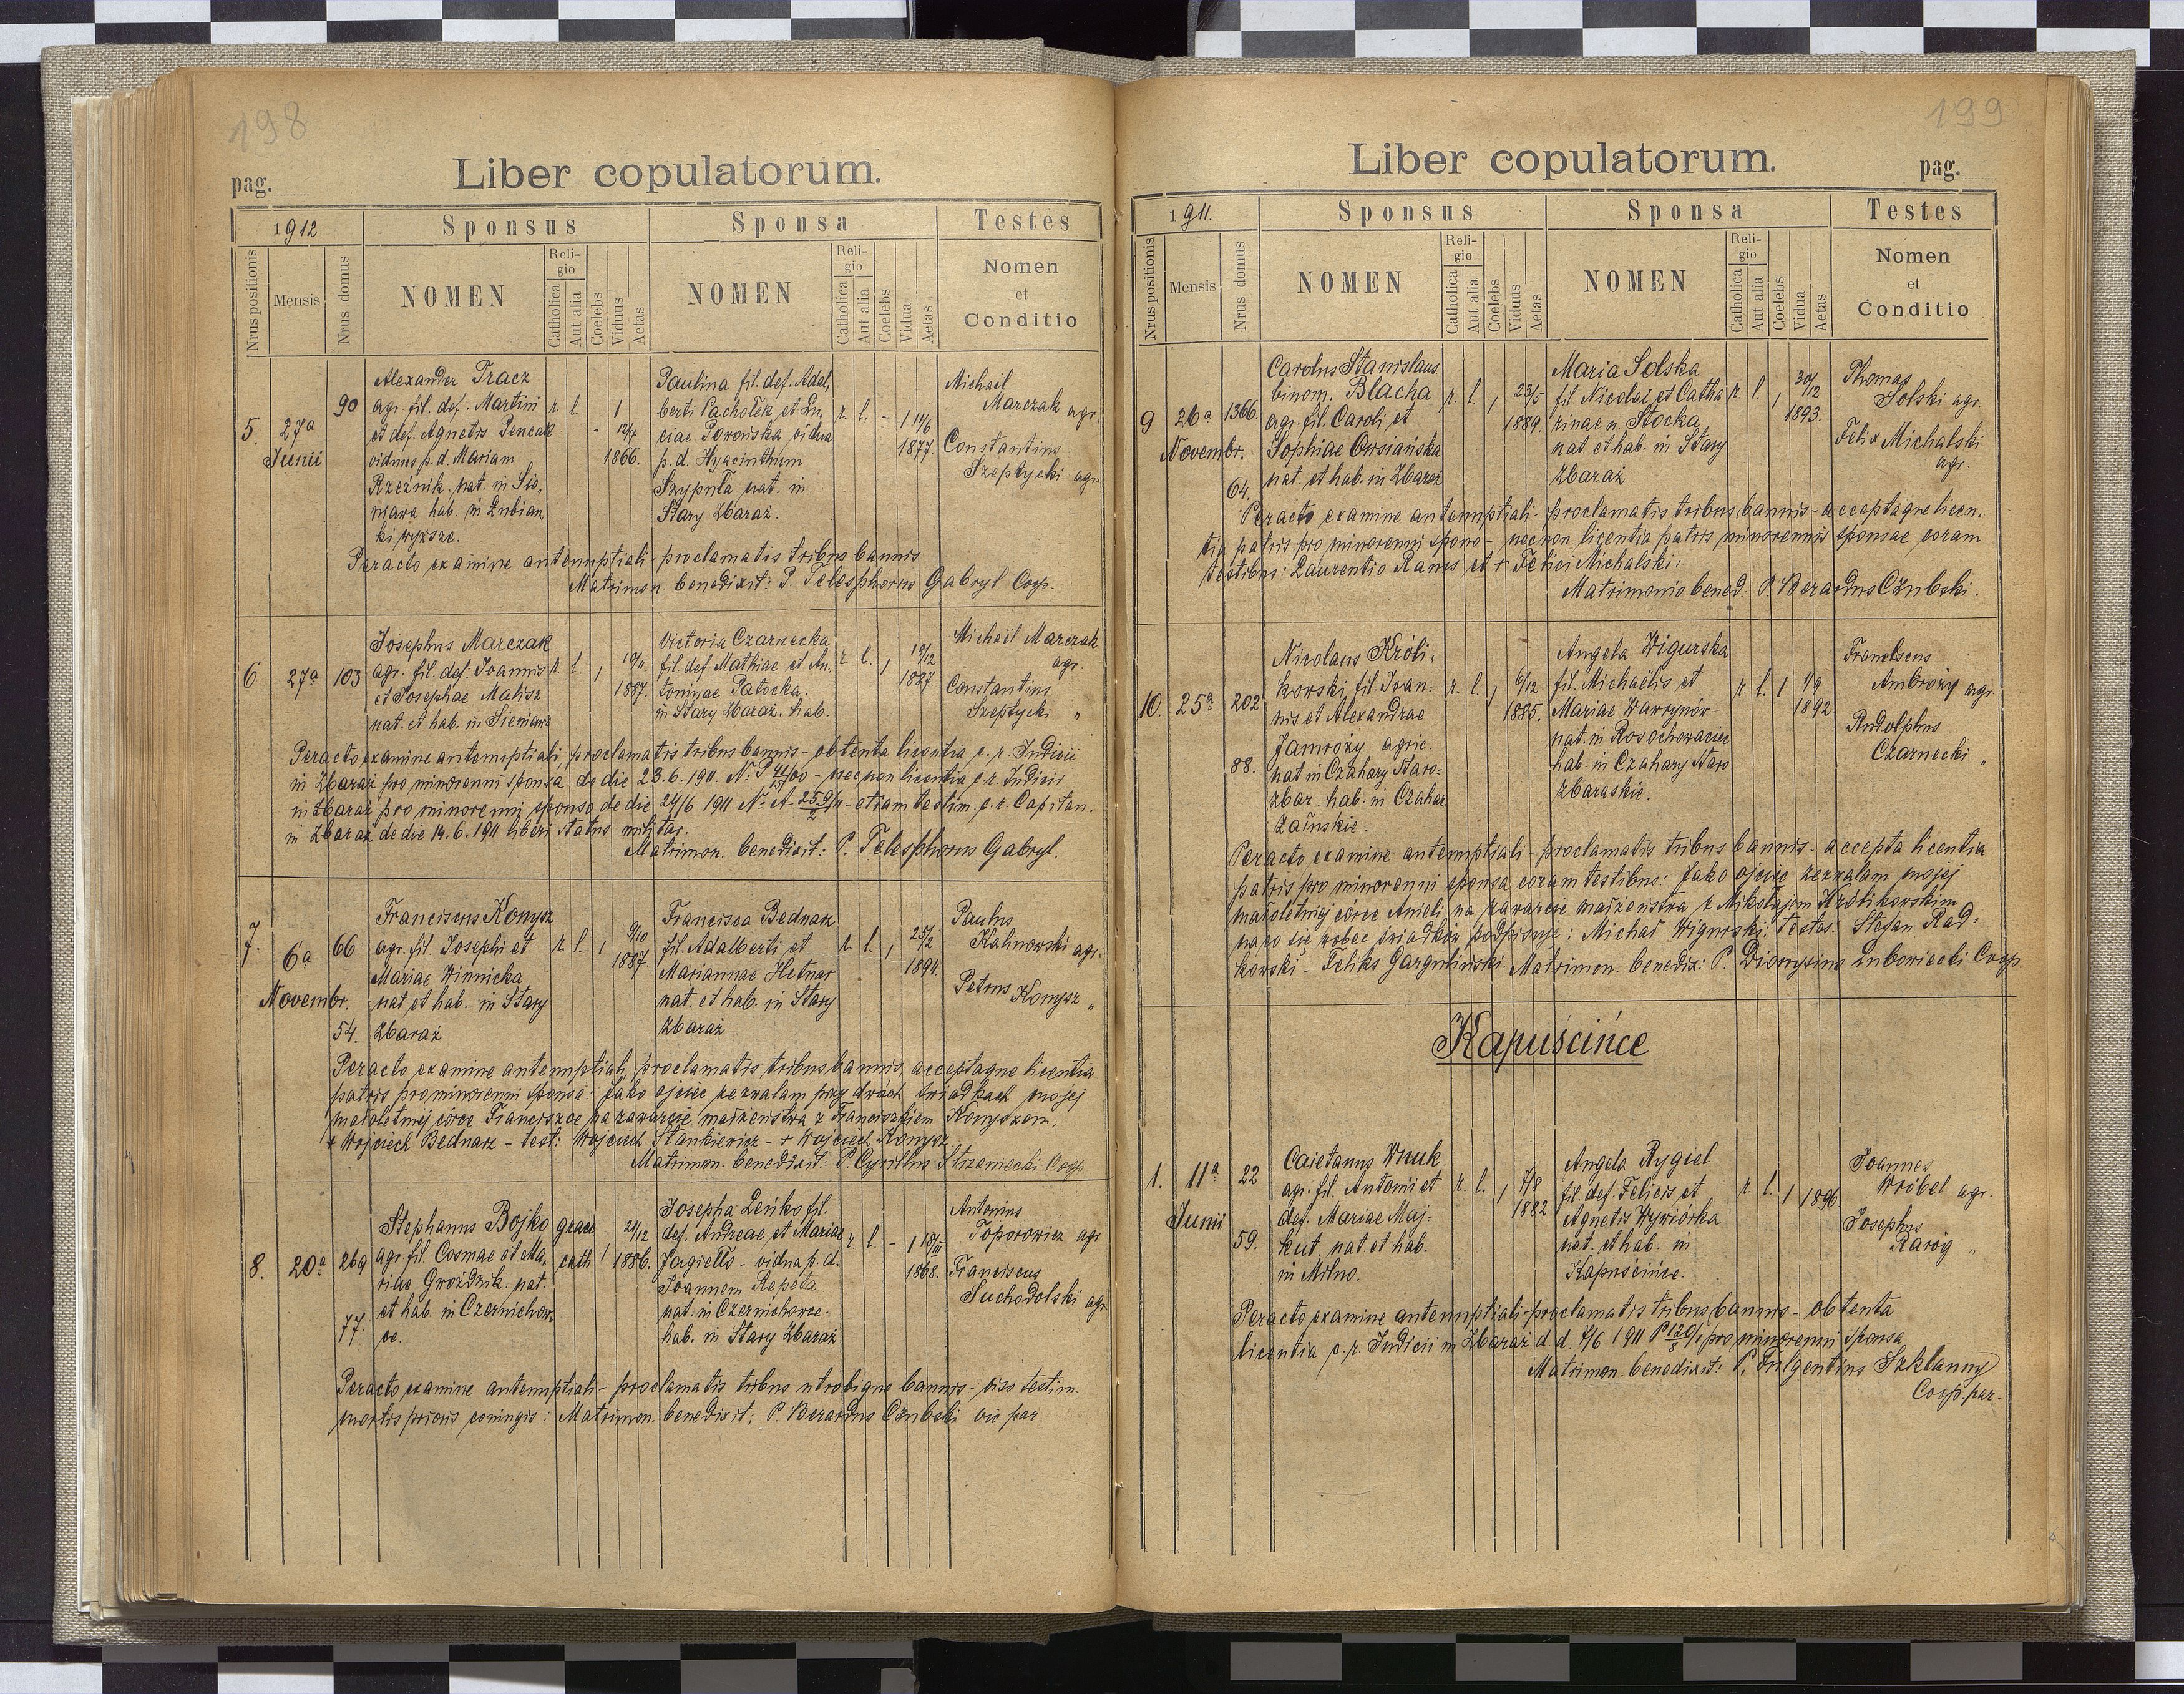 198
pag.
Liber copulatorum.
1912
Sponsus
Sponsa
Testes
Nrus positionis
Mensis
Nrus domus
NOMEN
Religio
Catholica
Aut alia
Coelebs
Viduus
Aetas
NOMEN
Religio
Catholica
Aut alia
Coelebs
Vidua
Aetas
Nomen
et
Conditio
5.
27a
Junii
90
Alexander Tracz
agr. fil. def. Martini
et def. Agnetis Pencak
viduus p. d. Mariam
Rzeźnik. nat. in Sie-
niawa hab. in Lubian
ki wyższe.
r. l.
- 1
12/7
1866.
Paulina fil. def. Adal,
berti Pachołek et Lu,
ciae Porońska vidua
p. d. Hyacinthum
Szypuła nat. in
Stary Zbaraż.
r. l.
- 1 14/6
1877.
Michail
Marczak agr.
Constantins
Szeptycki agr.
Peracto examine antenuptiali - proclamatis tribus bannis
Matrimon. benedixit: P. Telesphorus Gabryl Coop.
6
27a
103
Josephus Marczak
agr. fil. def. Joannis
et Josephae Malisz
nat. et hab. in Sieniawa
r. l. 1
10/11
1887.
Victoria Czarnecka
fil. def Mathiae et An.
toninae Patocka.
in Stary Zbaraż. hab.
r. l. 1
18/12
1887
Michaël Marczak
agr.
Constantins
Szeptycki "
Peracto examine antenuptiali, proclamatis tribus bannis - obtenta licentia c. r. Judicii
in Zbaraż pro minorenni sponsa de die 23.6.1911. N: P - necnon licentia c. r. Judicii
in Zbaraż pro minorenni sponso de die 24/6 1911 N: A 259/2 11 - etiam testim. c. r. Capitan.
in Zbaraż de die 14.6.1911 liberi status militar.
Matrimon. benedixit: P. Telesphorus Gabryl.
7.
6a
Novembr.
66
54.
Franciscus Konysz
agr. fil. Josephi et
Mariae Winnicka
nat et hab. in Stary
Zbaraż
r. l. 1
9/10
1887.
Francisca Bednarz
fil. Adalberti et
Mariannae Hetnar
nat. et hab. in Stary
Zbaraż
r. l. 1
25/2
1894.
Paulus
Kalinowski agr.
Petrus
Konysz "
Peracto examine antenuptiali, proclamatis tribus bannis, acceptaque licentia
patris pro minorenni sponsa: Jako ojciec zezwalam przy dwóch świadkach mojej
małoletniej córce Franciszce na zawarcie małżeństwa z Franciszkiem Konyszem.
+ Wojciech Bednarz - test: Wojciech Stankiewicz - + Wojciech Konysz
Matrimon. benedixit: P. Cyrillus Strzemecki Coop
8.
20a
269
77
Stephanus Bojko
agr. fil. Cosmae et Ma,
riae Groźdźik. nat.
et hab. in Czernichow.
ce.
graec
cath 1
24/12
1886.
Josepha Leńko fil.
def. Andreae et Mariae
Jagiełło - vidua p. d.
Joannem Repeta
nat. in Czernichowce.
hab. in Stary Zbaraż
r. l. - 1 18/III
1868.
Antonius
Toporowicz agr
Franciscus
Suchodolski agr
Peracto examine antenuptiali - proclamatis tribus utrobique bannis - viso testim.
mortis prioris coniugis: Matrimon. benedixit: P. Berardus Czubski vic. par.
199
Liber copulatorum.
pag.
1911.
Sponsus
Sponsa
Testes
Nrus positionis
Mensis
Nrus domus
NOMEN
Religio
Catholica
Aut alia
Coelebs
Viduus
Aetas
NOMEN
Religio
Catholica
Aut alia
Coelebs
Vidua
Aetas
Nomen
et
Conditio
9
26a
Novembr.
1366.
64.
Carolus Stanislaus
binom. Blacha
agr. fil. Caroli et
Sophiae Owsiańska
nat. et hab. in Zbaraż
r. l. 1
23/5
1889.
Maria Solska
fil Nicolai et Catha
rinae n. Stocka
nat. et hab. in Stary
Zbaraż
r. l. 1
30/12
1893.
Thomas
Solski agr.
Felix Michalski
agr.
Peracto examine antenuptiali - proclamatis tribus bannis - acceptaque licen.
tia patris pro minorenni sponso - necnon licentia patris minorennis sponsae coram
testibus: Laurentio Kanus et + Felici Michalski:
Matrimonio bened. P. Berardus Czubski.
10.
25a
202
88.
Nicolaus Króli,
kowski fil. Joan-
nis et Alexandrae
Jamroży agric.
nat in Czahary Staro-
zbar. hab. in Czahar.
zańskie.
r. l. 1
6/12
1885.
Angela Wigurska
fil. Michaëlis et
Mariae Wawrynów
nat. in Rosochowaciec
hab. in Czahary Staro
zbaraskie.
r. l. 1
1/9
1892
Franciscus
Ambroży agr.
Rudolphus
Czarnecki "
Peracto examine antenuptiali - proclamatis tribus bannis - accepta licentia
patris pro minorenni sponsa coram testibus: Jako ojciec zezwalam mojej
małoletniej córce Anieli na zawarcie małżeństwa z Mikołajem Królikowskim
na co się wobec świadków podpisuje: Michał Wigurski. Testes: Stefan Rad-
kowski - Feliks Garguliński. Matrimon. benedix: P. Dionysius Lubowiecki Coop.
Kapuścińce
1.
11a
Junii
22
59.
Caietanus Wnuk
agr. fil. Antonii et
def. Mariae Maj-
kut nat. et hab.
in Milno.
r. l. 1
7/8
1882
Angela Rygiel
fil. def. Felicis et
Agnetis Wywiórka
nat. et hab. in
Kapuścińce.
r. l. 1 1896
Joannes
Wróbel agr.
Josephus
Raróg "
Peracto examine antenuptiali - proclamatis tribus bannis - obtenta
licentia c. r. Judicii in Zbaraż d. d. 7/6 1911 P 120/8 pro minorenni sponsa
Matrimon. benedixit: P. Fulgentius Szklanny
Coop. par.